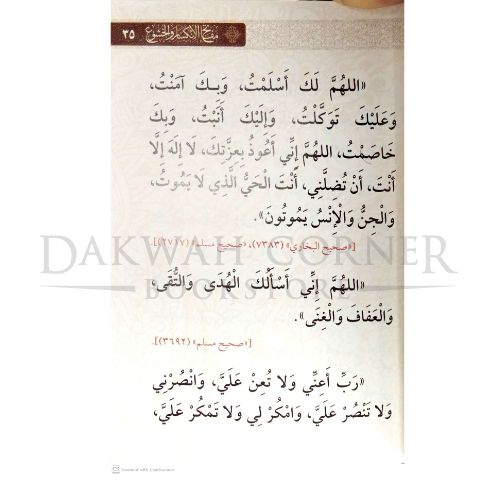 مفاتح الانكسار والخشوع ٣٥
«اللهُمَّ لَكَ أَسْلَمْتُ، وَبِكَ آمَنْتُ،
وَعَلَيْكَ تَوَكَّلْتُ، وَإِلَيْكَ أَنَبْتُ، وَبِكَ
خَاصَمْتُ، اللهُمَّ إِنِّي أَعُوذُ بِعِزَّتِكَ، لَا إِلَهَ إِلَّا
أَنْتَ، أَنْ تُضِلَّنِي، أَنْتَ الْحَيُّ الَّذِي لَا يَمُوتُ،
وَالْجِنُّ وَالْإِنْسُ يَمُوتُونَ».
[«صحيح البخاري» (٧٣٨٣)، «صحيح مسلم» (٢٧١٧)].
DAKWAH CORNER
BOOKSTORE
«اللهُمَّ إِنِّي أَسْأَلُكَ الْهُدَى وَالتُّقَى،
وَالْعَفَافَ وَالْغِنَى».
[«صحيح مسلم» (٣٦٩٢)].
«رَبِّ أَعِنِّي وَلَا تُعِنْ عَلَيَّ، وَانْصُرْنِي
وَلَا تَنْصُرْ عَلَيَّ، وَامْكُرْ لِي وَلَا تَمْكُرْ عَلَيَّ،
CS Scanned with CamScanner